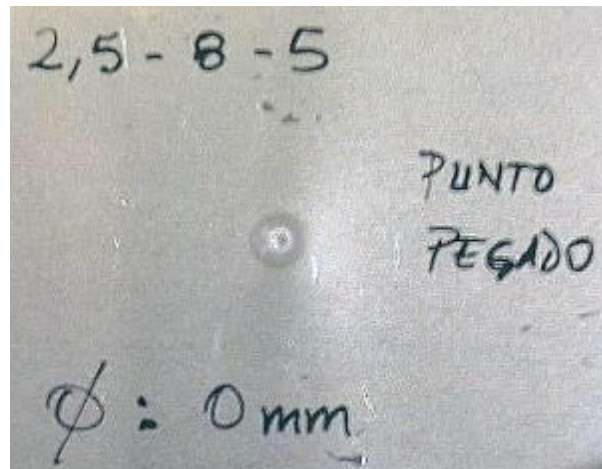 2,5 - 8 - 5
PUNTO
PEGADO
φ : 0 mm